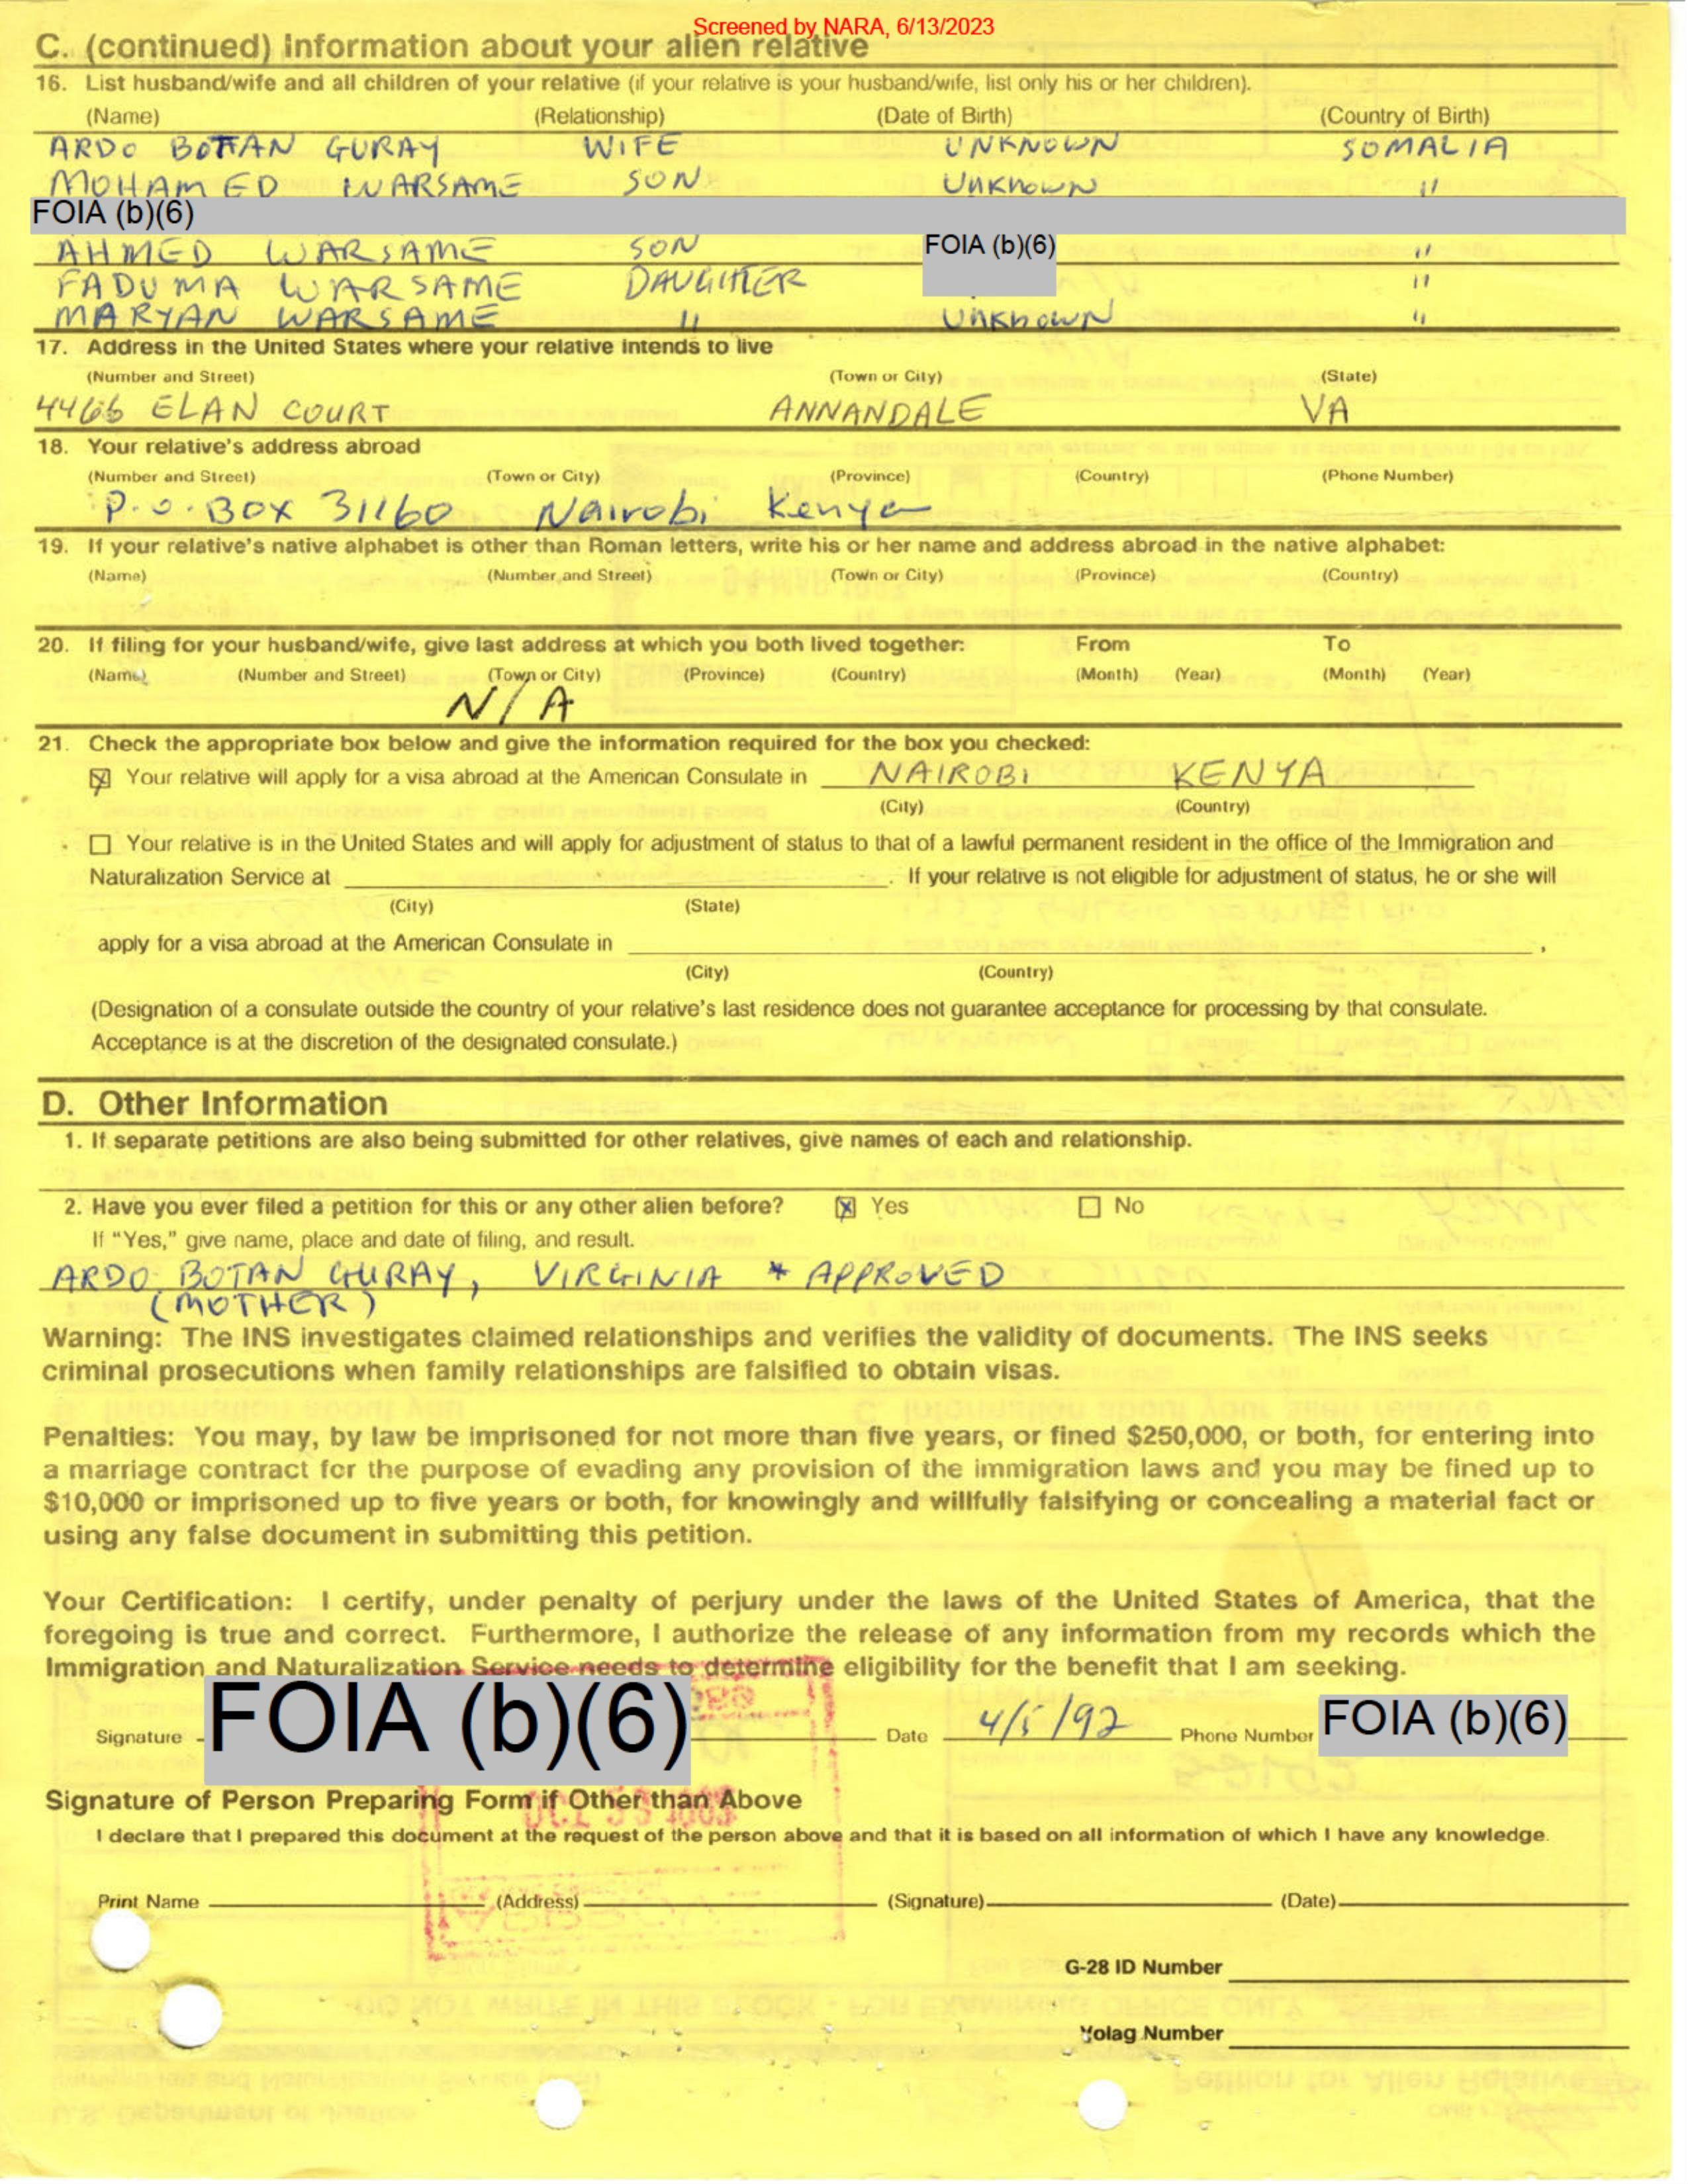 Screened by NARA, 6/13/2023
C. (continued) Information about your alien relative
16. List husband/wife and all children of your relative (if your relative is your husband/wife, list only his or her children).
(Name) (Relationship) (Date of Birth) (Country of Birth)
ARDO BOTTAN GURAY WIFE UNKNOWN SOMALIA
MOHAMED WARSAME SON UNKNOWN "
FOIA (b)(6)
AHMED WARSAME SON FOIA (b)(6) "
FADUMA WARSAME DAUGHTER "
MARYAN WARSAME " UNKNOWN "
17. Address in the United States where your relative intends to live
(Number and Street) (Town or City) (State)
4466 ELAN COURT ANNANDALE VA
18. Your relative's address abroad
(Number and Street) (Town or City) (Province) (Country) (Phone Number)
P.O. BOX 31160 Nairobi Kenya
19. If your relative's native alphabet is other than Roman letters, write his or her name and address abroad in the native alphabet:
(Name) (Number and Street) (Town or City) (Province) (Country)
20. If filing for your husband/wife, give last address at which you both lived together: From To
(Name) (Number and Street) (Town or City) (Province) (Country) (Month) (Year) (Month) (Year)
N/A
21. Check the appropriate box below and give the information required for the box you checked:
☒ Your relative will apply for a visa abroad at the American Consulate in NAIROBI KENYA
(City) (Country)
☐ Your relative is in the United States and will apply for adjustment of status to that of a lawful permanent resident in the office of the Immigration and
Naturalization Service at ______. If your relative is not eligible for adjustment of status, he or she will
(City) (State)
apply for a visa abroad at the American Consulate in ______,
(City) (Country)
(Designation of a consulate outside the country of your relative's last residence does not guarantee acceptance for processing by that consulate.
Acceptance is at the discretion of the designated consulate.)
D. Other Information
1. If separate petitions are also being submitted for other relatives, give names of each and relationship.
2. Have you ever filed a petition for this or any other alien before? ☒ Yes ☐ No
If "Yes," give name, place and date of filing, and result.
ARDO BOTAN GURAY, VIRGINIA * APPROVED
(MOTHER)
Warning: The INS investigates claimed relationships and verifies the validity of documents. The INS seeks
criminal prosecutions when family relationships are falsified to obtain visas.
Penalties: You may, by law be imprisoned for not more than five years, or fined $250,000, or both, for entering into
a marriage contract for the purpose of evading any provision of the immigration laws and you may be fined up to
$10,000 or imprisoned up to five years or both, for knowingly and willfully falsifying or concealing a material fact or
using any false document in submitting this petition.
Your Certification: I certify, under penalty of perjury under the laws of the United States of America, that the
foregoing is true and correct. Furthermore, I authorize the release of any information from my records which the
Immigration and Naturalization Service needs to determine eligibility for the benefit that I am seeking.
Signature FOIA (b)(6) Date 4/5/92 Phone Number FOIA (b)(6)
Signature of Person Preparing Form if Other than Above
I declare that I prepared this document at the request of the person above and that it is based on all information of which I have any knowledge.
Print Name (Address) (Signature) (Date)
G-28 ID Number
Volag Number